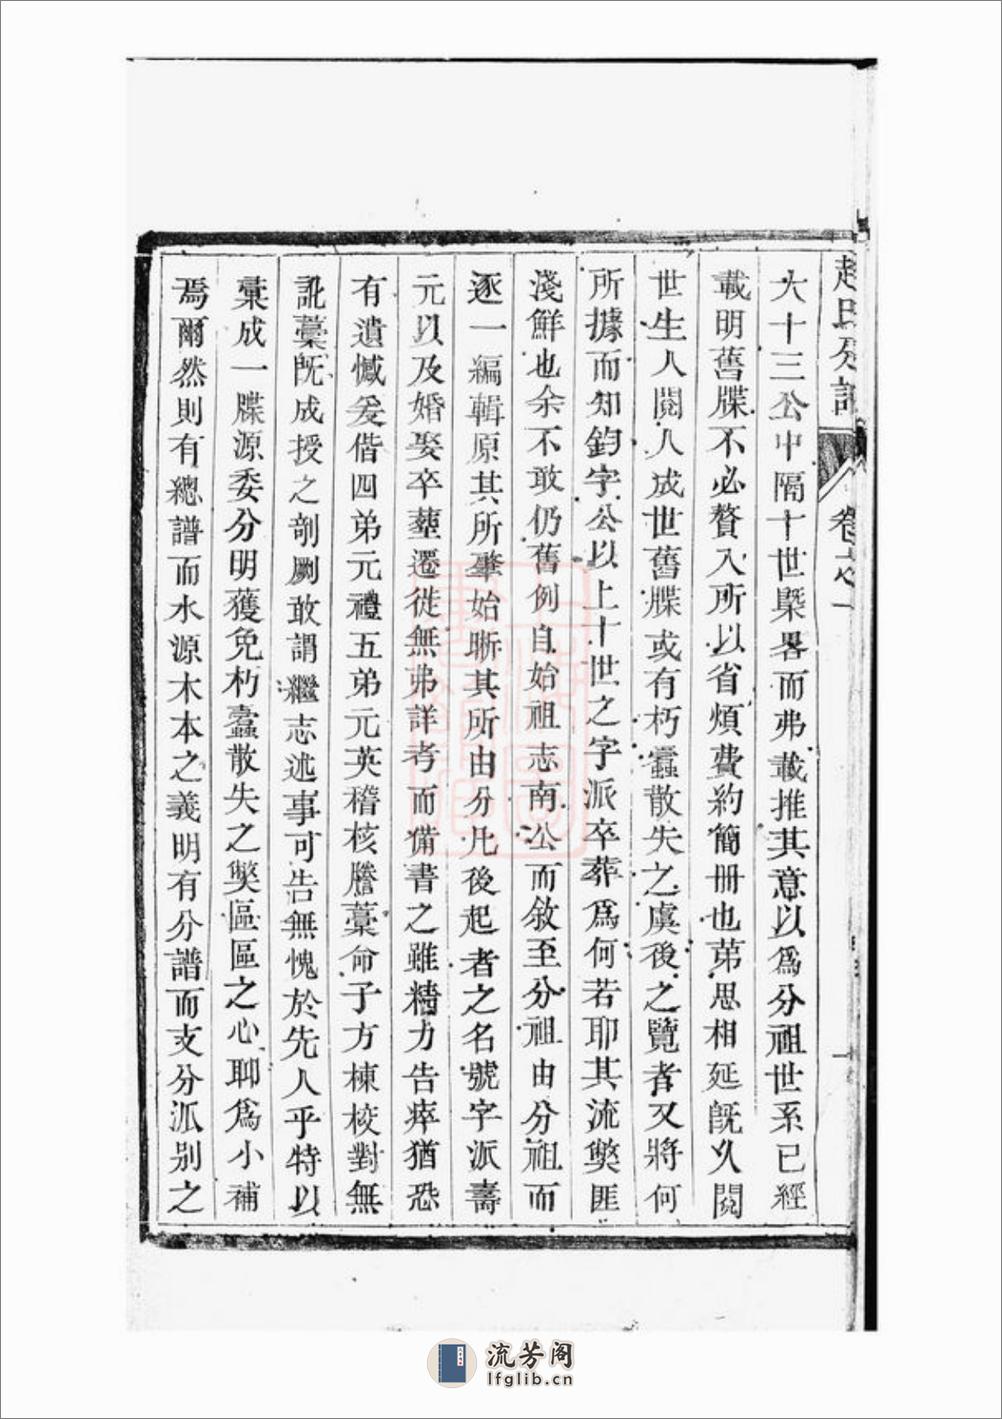 趙氏分譜 卷之一
大十三公中隔十世槩畧而弗載推其意以爲分祖世系已經
載明舊牒不必贅入所以省煩費約簡冊也苐思相延旣久閱
世生人閱人成世舊牒或有朽蠹散失之虞後之覽者又將何
所據而知鈞字公以上十世之字派卒葬爲何若耶其流獘匪
淺鮮也余不敢仍舊例自始祖志南公而敘至分祖由分祖而
逐一編輯原其所肇始晰其所由分凡後起者之名號字派壽
元以及婚娶卒塟遷徙無弗詳考而備書之雖精力告瘁猶恐
有遺憾爰偕四弟元禮五弟元英稽核謄藁命子方棟校對無
訛藁旣成授之剞劂敢謂繼志述事可告無愧於先人乎特以
彙成一牒源委分明獲免朽蠹散失之獘區區之心聊爲小補
焉爾然則有總譜而水源木本之義明有分譜而支分派別之
流芳阁
lfglib.cn